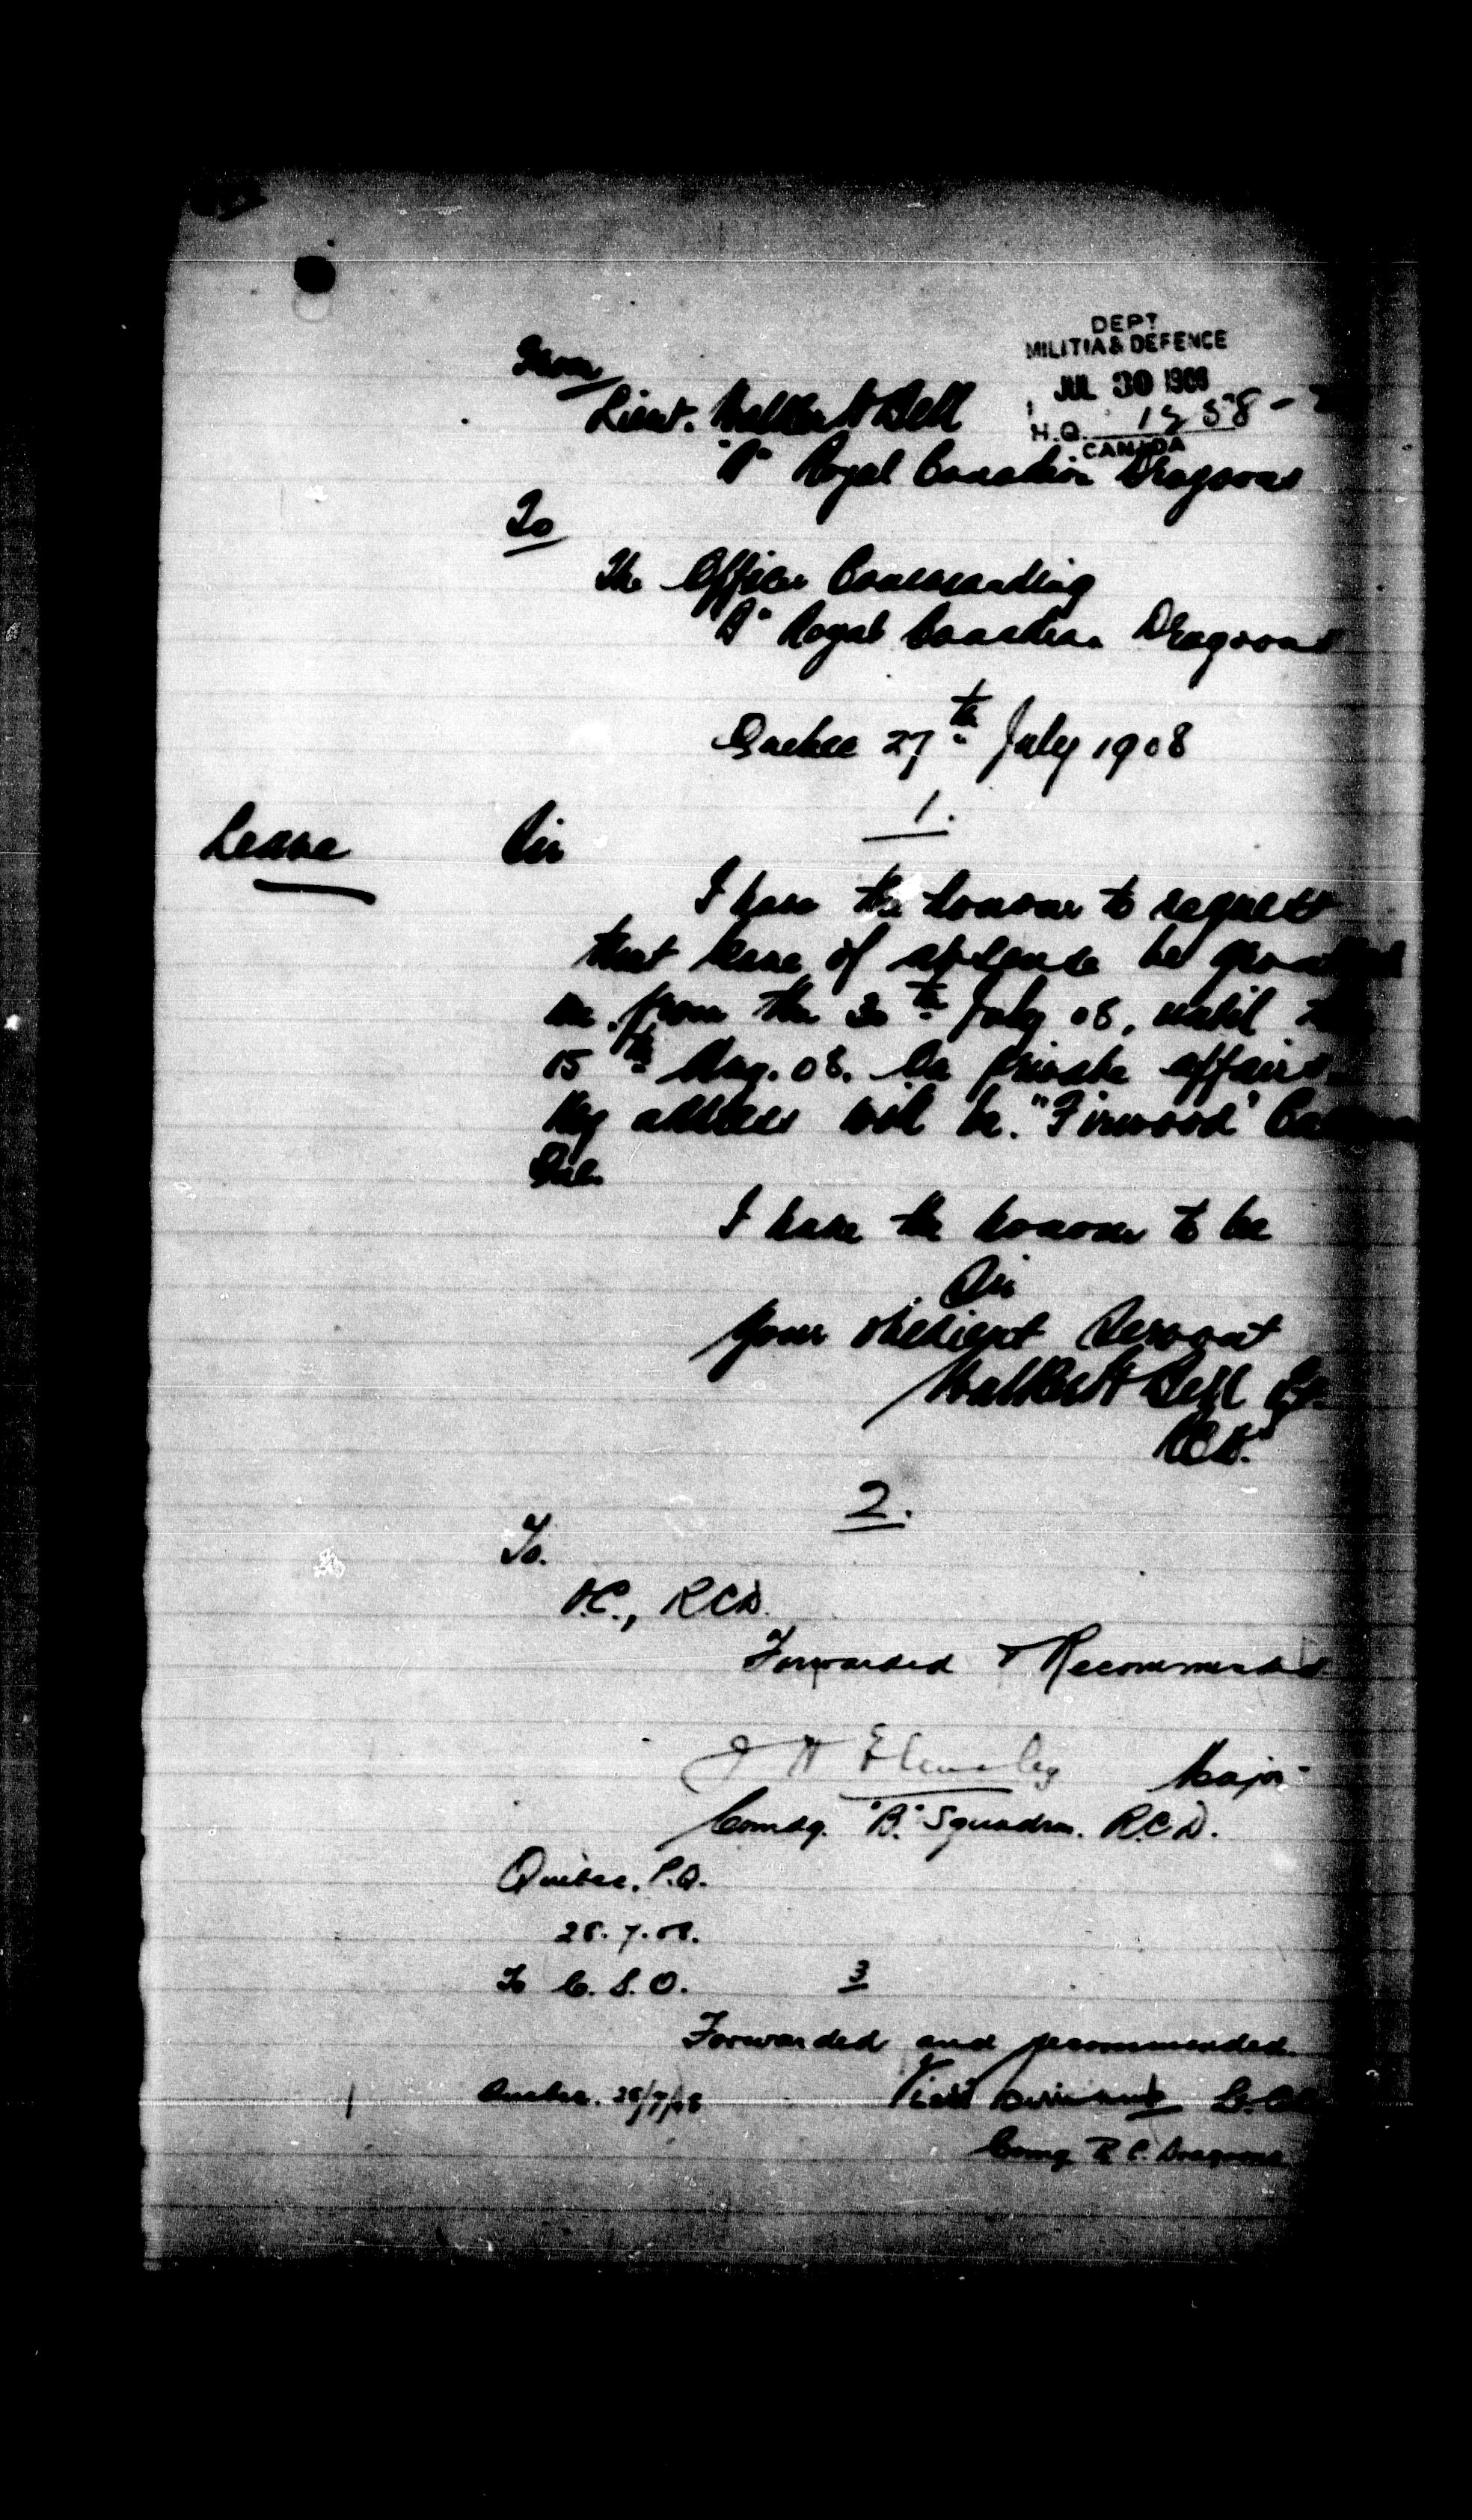 DEPT
MILITIA & DEFENCE
JUL 30 1908
H.Q. 1258-
CANADA
From
Lieut. Walker H Bell
Royal Canadian Dragoons
To
The Officer Commanding
Royal Canadian Dragoons
Quebec 27th July 1908
1.
Leave
Sir
I have the honour to request
that leave of absence be granted
me. from the 30th July 08, until the
15th Aug. 08. On private affairs.
My address will be. "Firwood"
Que.
I have the honour to be
Sir
Your obedient Servant
Walker H Bell Lt.
RCD.
2.
To.
O.C., RCD.
Forwarded & Recommended
J H Elmsley Major
Comdg. "B." Squadron. R.C.D.
Quebec. P.Q.
28.7.08.
To C.S.O. 3
Forwarded and recommended.
Quebec. 28/7/08
Lt. Col
Comg R.C. Dragoons